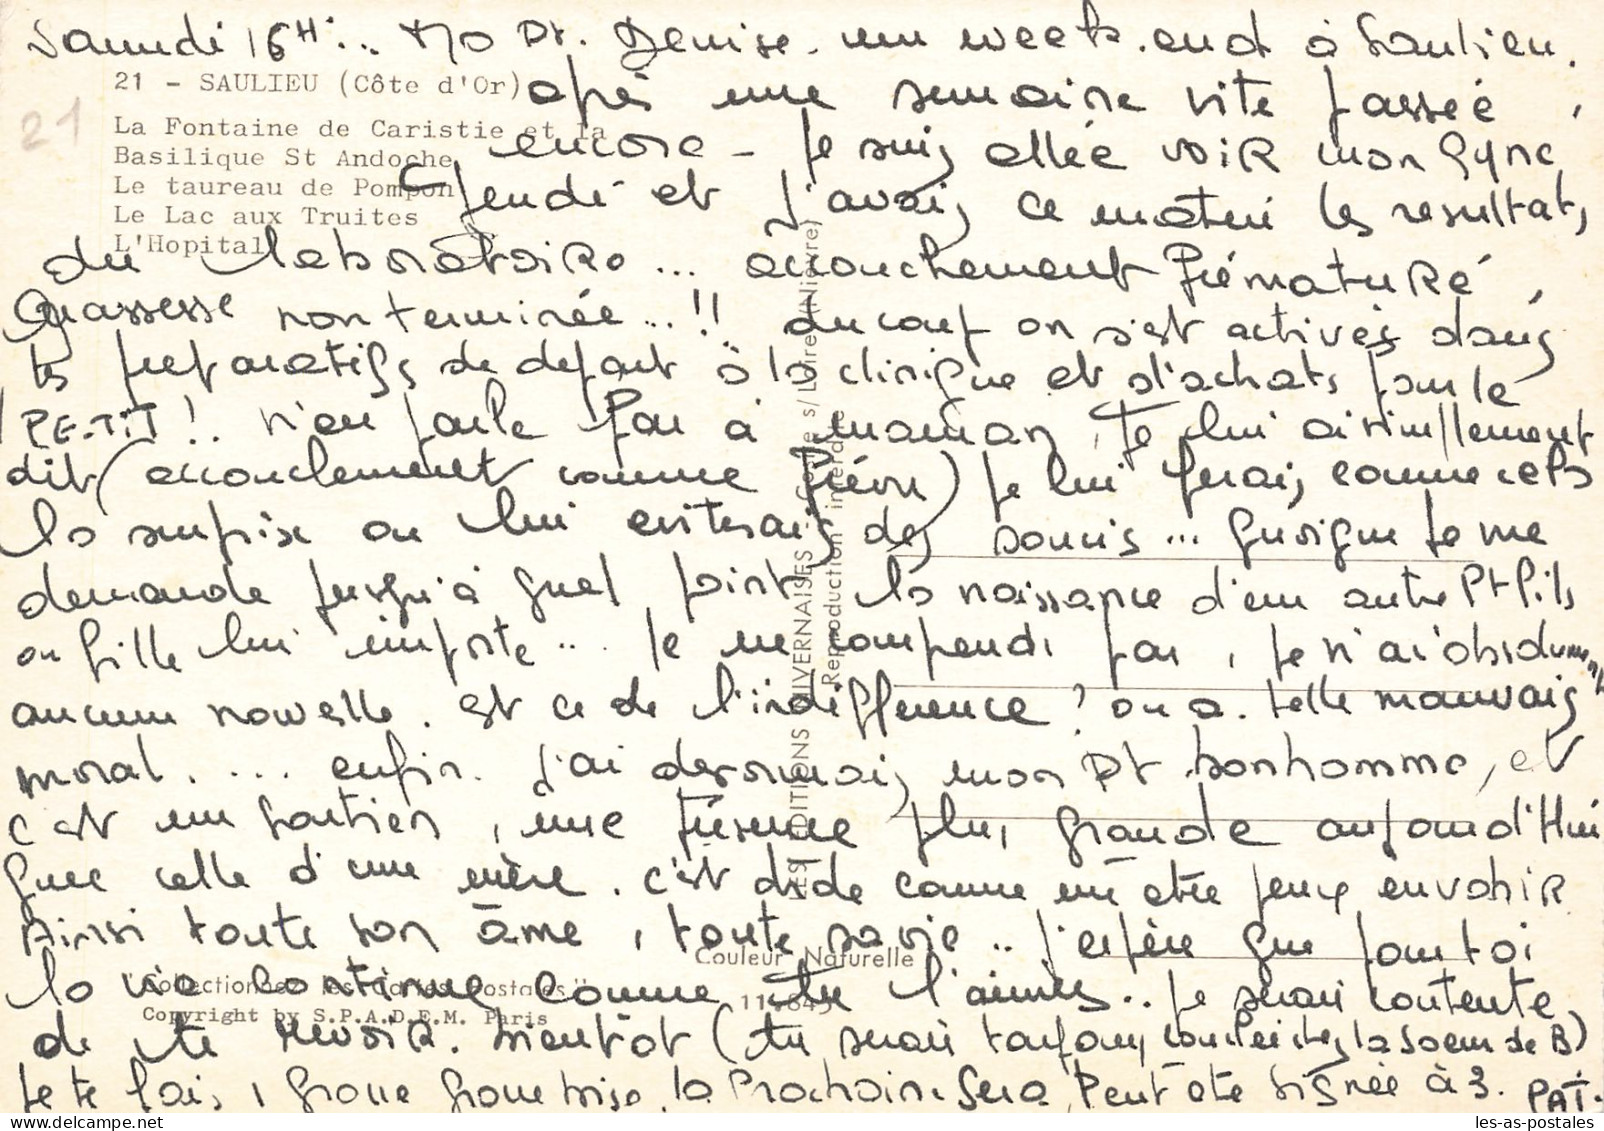 Samedi 16H... Ma Pt. Denise. un week.end à Saulieu.
21 - SAULIEU (Côte d'Or)
après une semaine vite passée,
21
La Fontaine de Caristie et la
Basilique St Andoche
Le taureau de Pompon
Le Lac aux Truites
L'Hopital
encore - Je suis allée voir mon Gyné
Jeudi et j'avais ce matin les resultats
du laboratoire... accouchement prématuré,
Grossesse non terminée...!! du coup on s'est activés dans
les preparatifs de depart à la clinique et d'achats pour le
PETIT!.. n'en parle pas à maman, Je lui ai
dit (accouchement comme prévu) Je lui ferais comme cela
la surprise ou lui eviterais des soucis... Quoique Je me
demande jusqu'à quel point la naissance d'un autre Pt fils
ou fille lui importe... Je ne comprends pas, Je n'ai absolument
aucune nouvelle. est ce de l'indifférence? on a. telle mauvais
moral.... enfin. J'ai desormais mon Pt bonhomme, et
c'est un soutien, une présence plus grande aujourd'Hui
que celle d'une mère. c'est comme un être peux envahir
Ainsi toute son âme, toute sa vie... J'espère que pour toi
la vie continue comme tu l'aimes.. Je serai contente
de te revoir. bientôt (tu serais toujours chez la soeur de B)
Je te fais 1 grosse grosse bise. la Prochaine Sera Peut etre signée à 3. PAT.
LES EDITIONS NIVERNAISES - Cosne s/Loire (Nièvre)
Reproduction interdite
Couleur Naturelle
"Collectionnez les Cartes Postales"
Copyright by S.P.A.D.E.M. Paris
les-as-postales.com